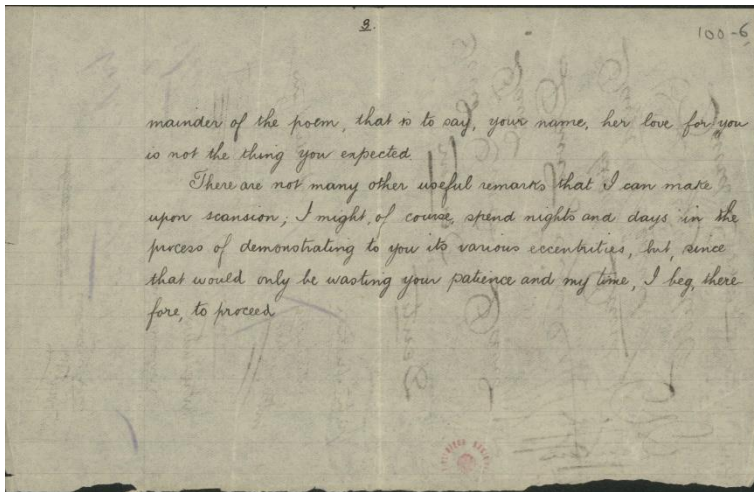 3.
100-6
mainder of the poem, that is to say, your name, her love for you
is not the thing you expected
There are not many other useful remarks that I can make
upon scansion; I might, of course, spend nights and days in the
process of demonstrating to you its various eccentrities, but, since
that would only be wasting your patience and my time, I beg, there
fore, to proceed